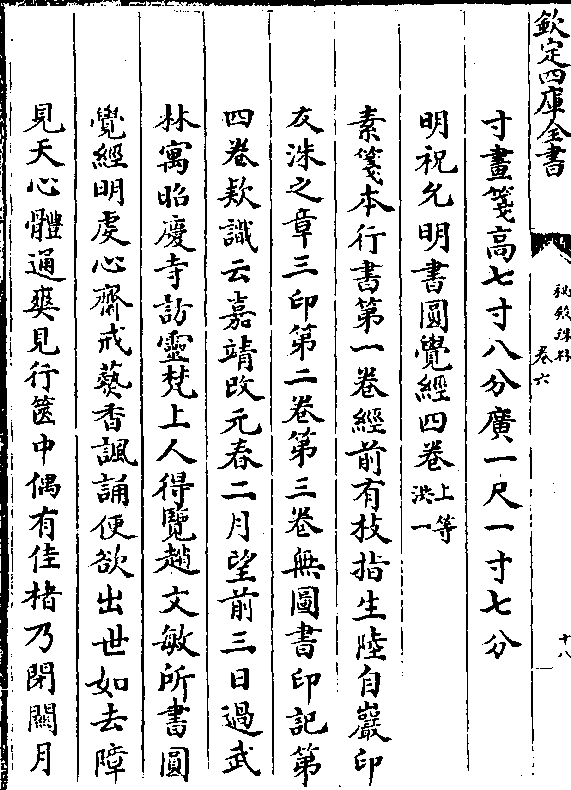 欽定四庫全書
秘殿珠林
卷六
十八
寸畫箋高七寸八分廣一尺一寸七分
明祝允明書圓覺經四卷上等洪一
素箋本行書第一卷經前有枝指生陸自巖印
友洙之章三印第二卷第三卷無圖書印記第
四卷欵識云嘉靖改元春二月望前三日過武
林寓昭慶寺訪靈梵上人得覽趙文敏所書圓
覺經明虔心齋戒爇香諷誦便欲出世如去障
見天心體通爽見行篋中偶有佳楮乃閉關月